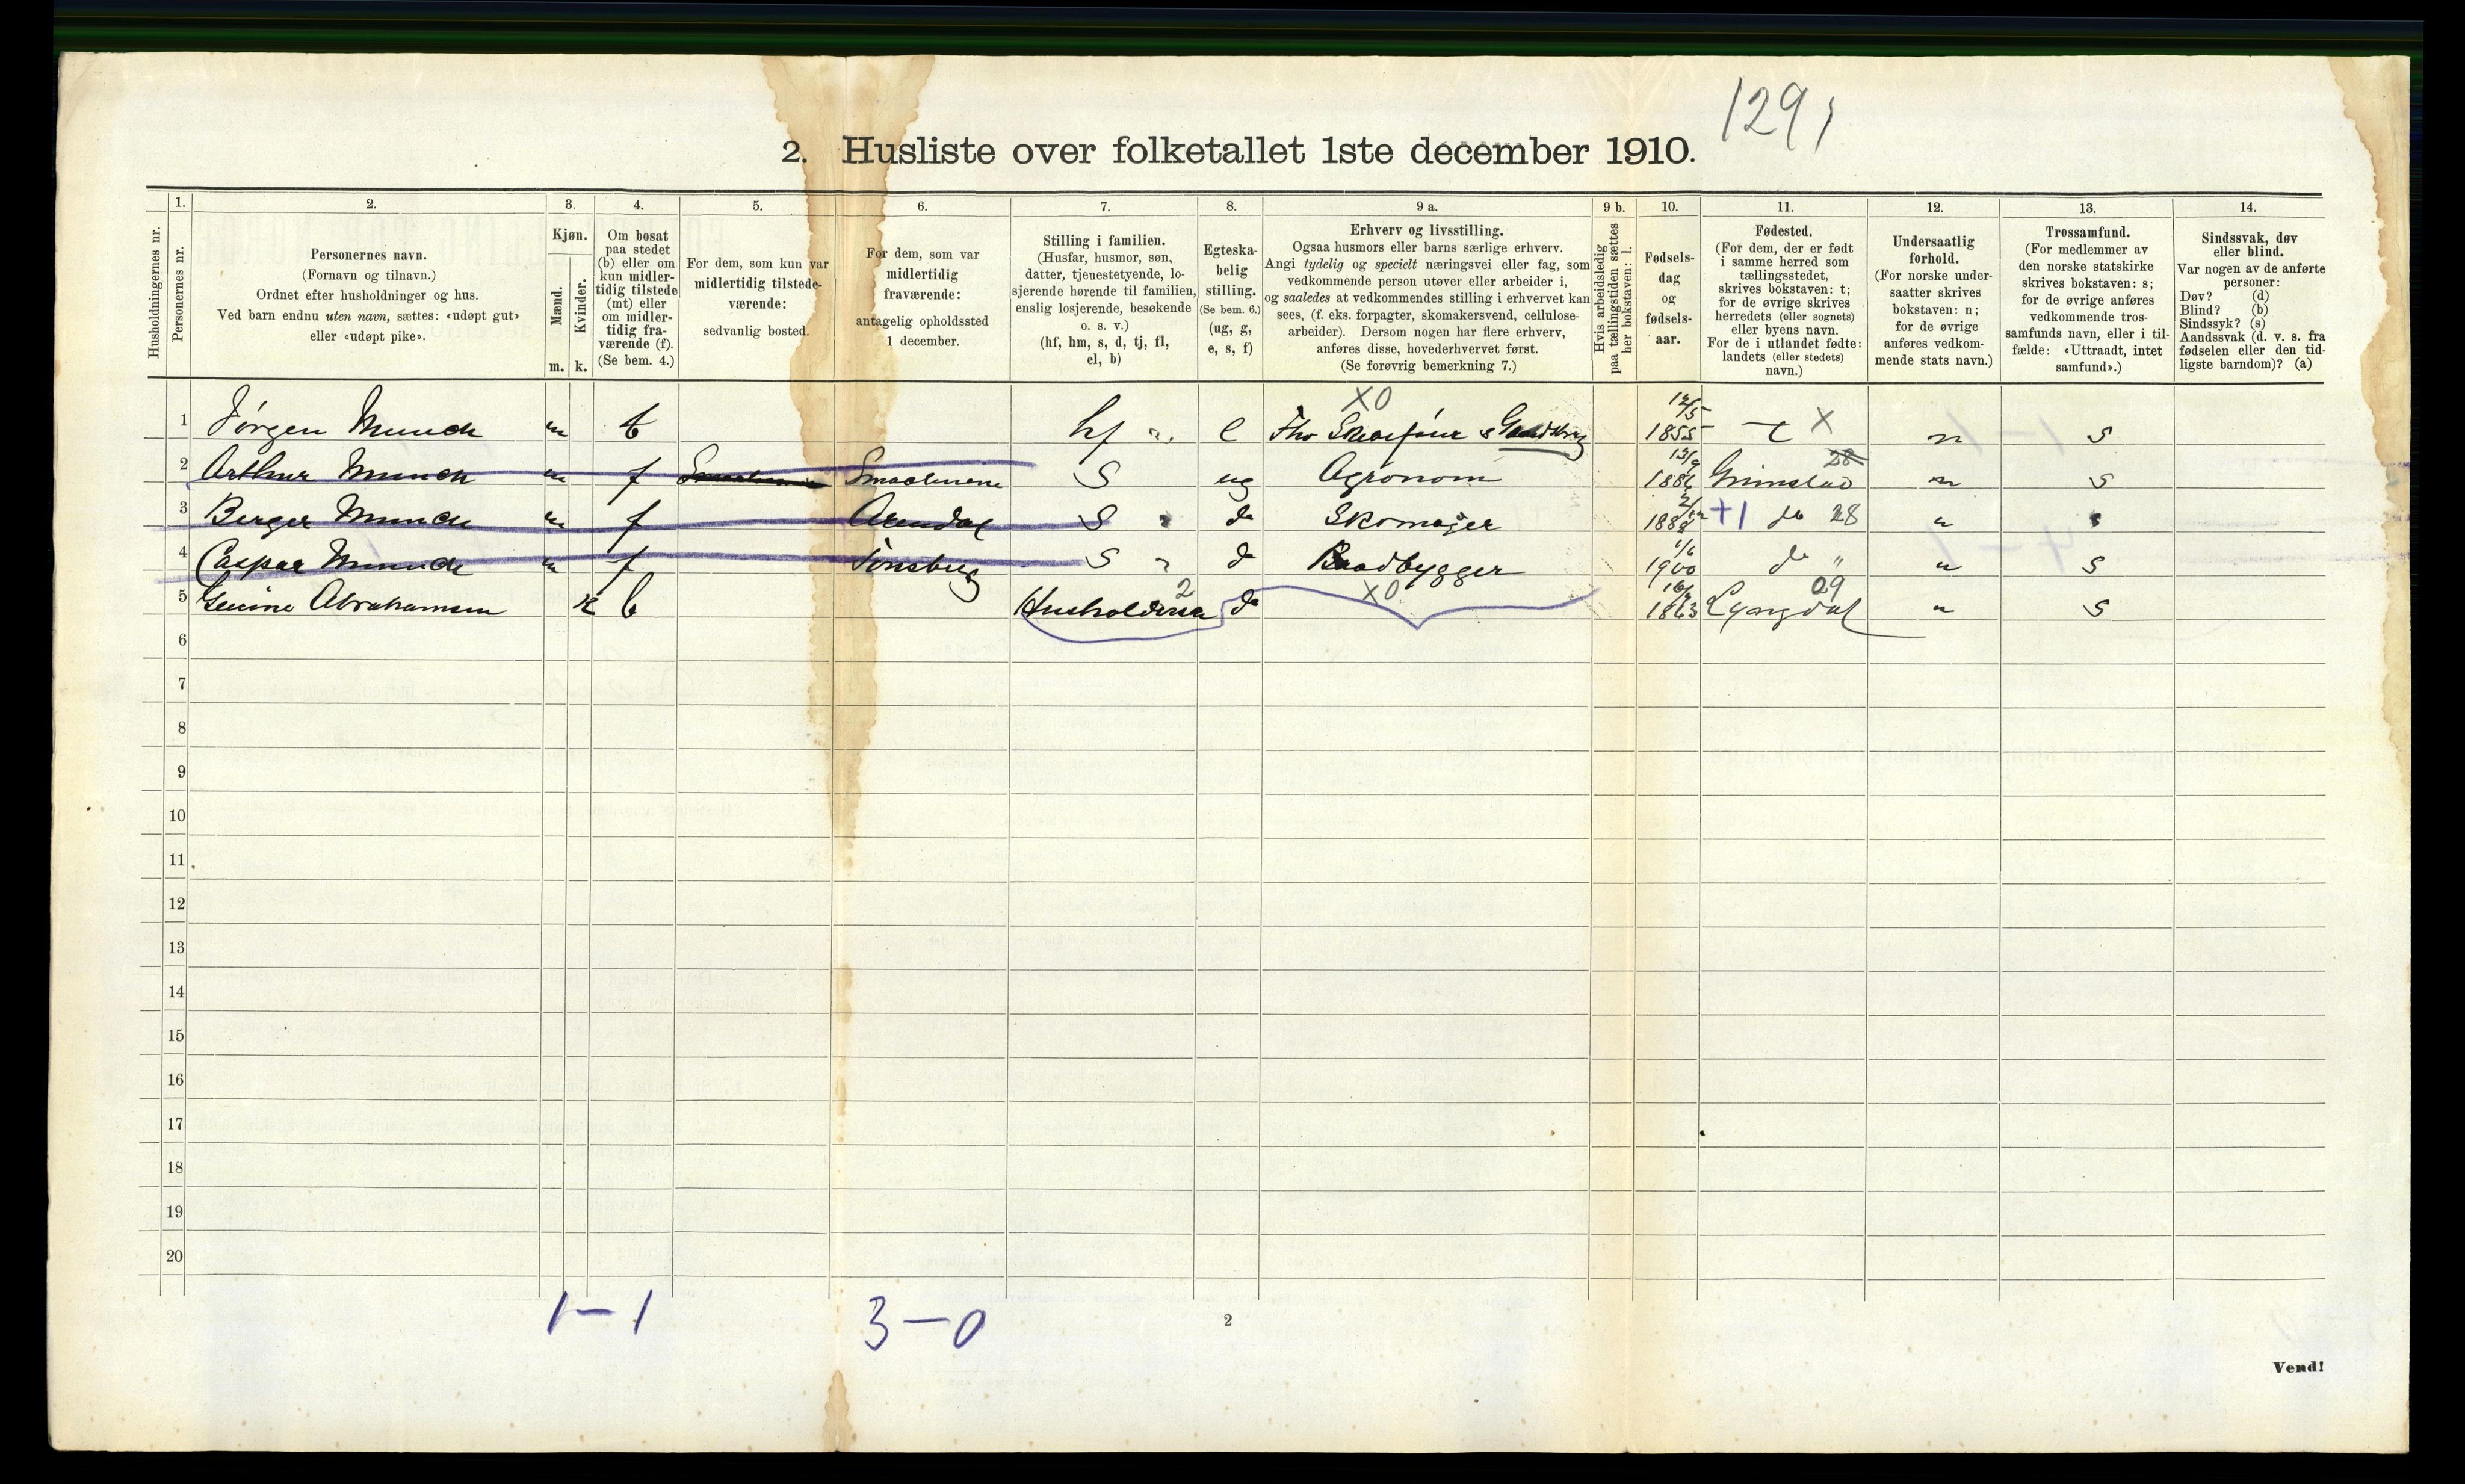 1291
2. Husliste over folketallet 1ste december 1910.
Husholdningernes nr.
1. Personernes nr.
2. Personernes navn.
(Fornavn og tilnavn.)
Ordnet efter husholdninger og hus.
Ved barn endnu uten navn, sættes: «udøpt gut»
eller «udøpt pike».
3. Kjøn.
Mænd. Kvinder.
m. k.
4. Om bosat
paa stedet
(b) eller om
kun midler-
tidig tilstede
(mt) eller
om midler-
tidig fra-
værende (f).
(Se bem. 4.)
5. For dem, som kun var
midlertidig tilstede-
værende:
sedvanlig bosted.
6. For dem, som var
midlertidig
fraværende:
antagelig opholdssted
1 december.
7. Stilling i familien.
(Husfar, husmor, søn,
datter, tjenestetyende, lo-
sjerende hørende til familien,
enslig losjerende, besøkende
o. s. v.)
(hf, hm, s, d, tj, fl,
el, b)
8. Egteska-
belig
stilling.
(Se bem. 6.)
(ug, g,
e, s, f)
9 a. Erhverv og livsstilling.
Ogsaa husmors eller barns særlige erhverv.
Angi tydelig og specielt næringsvei eller fag, som
vedkommende person utøver eller arbeider i,
og saaledes at vedkommendes stilling i erhvervet kan
sees, (f. eks. forpagter, skomakersvend, cellulose-
arbeider). Dersom nogen har flere erhverv,
anføres disse, hovederhvervet først.
(Se forøvrig bemerkning 7.)
9 b. Hvis arbeidsledig
paa tællingstiden sættes
her bokstaven: l.
10. Fødsels-
dag
og
fødsels-
aar.
11. Fødested.
(For dem, der er født
i samme herred som
tællingsstedet,
skrives bokstaven: t;
for de øvrige skrives
herredets (eller sognets)
eller byens navn.
For de i utlandet fødte:
landets (eller stedets)
navn.)
12. Undersaatlig
forhold.
(For norske under-
saatter skrives
bokstaven: n;
for de øvrige
anføres vedkom-
mende stats navn.)
13. Trossamfund.
(For medlemmer av
den norske statskirke
skrives bokstaven: s;
for de øvrige anføres
vedkommende tros-
samfunds navn, eller i til-
fælde: «Uttraadt, intet
samfund».)
14. Sindssvak, døv
eller blind.
Var nogen av de anførte
personer:
Døv? (d)
Blind? (b)
Sindssyk? (s)
Aandssvak (d. v. s. fra
fødselen eller den tid-
ligste barndom)? (a)
X0
1 Jørgen Munch m b hf e 12/5 1855 t X n s
2 Arthur Munch m f Smaalenene S ug Agronom 13/9 1886 Grimstad 28 n s
3 Berger Munch m f Arendal S do Skomager 1888 +1 do 28 n s
4 Caspar Munch m f Tønsberg S do Baadbygger 1/6 1900 do " n s
2 X0 29
5 Abrahamsen k b Husholderske do 1863 Lyngdal n s
6
7
8
9
10
11
12
13
14
15
16
17
18
19
20
1-1 3-0
2
Vend!